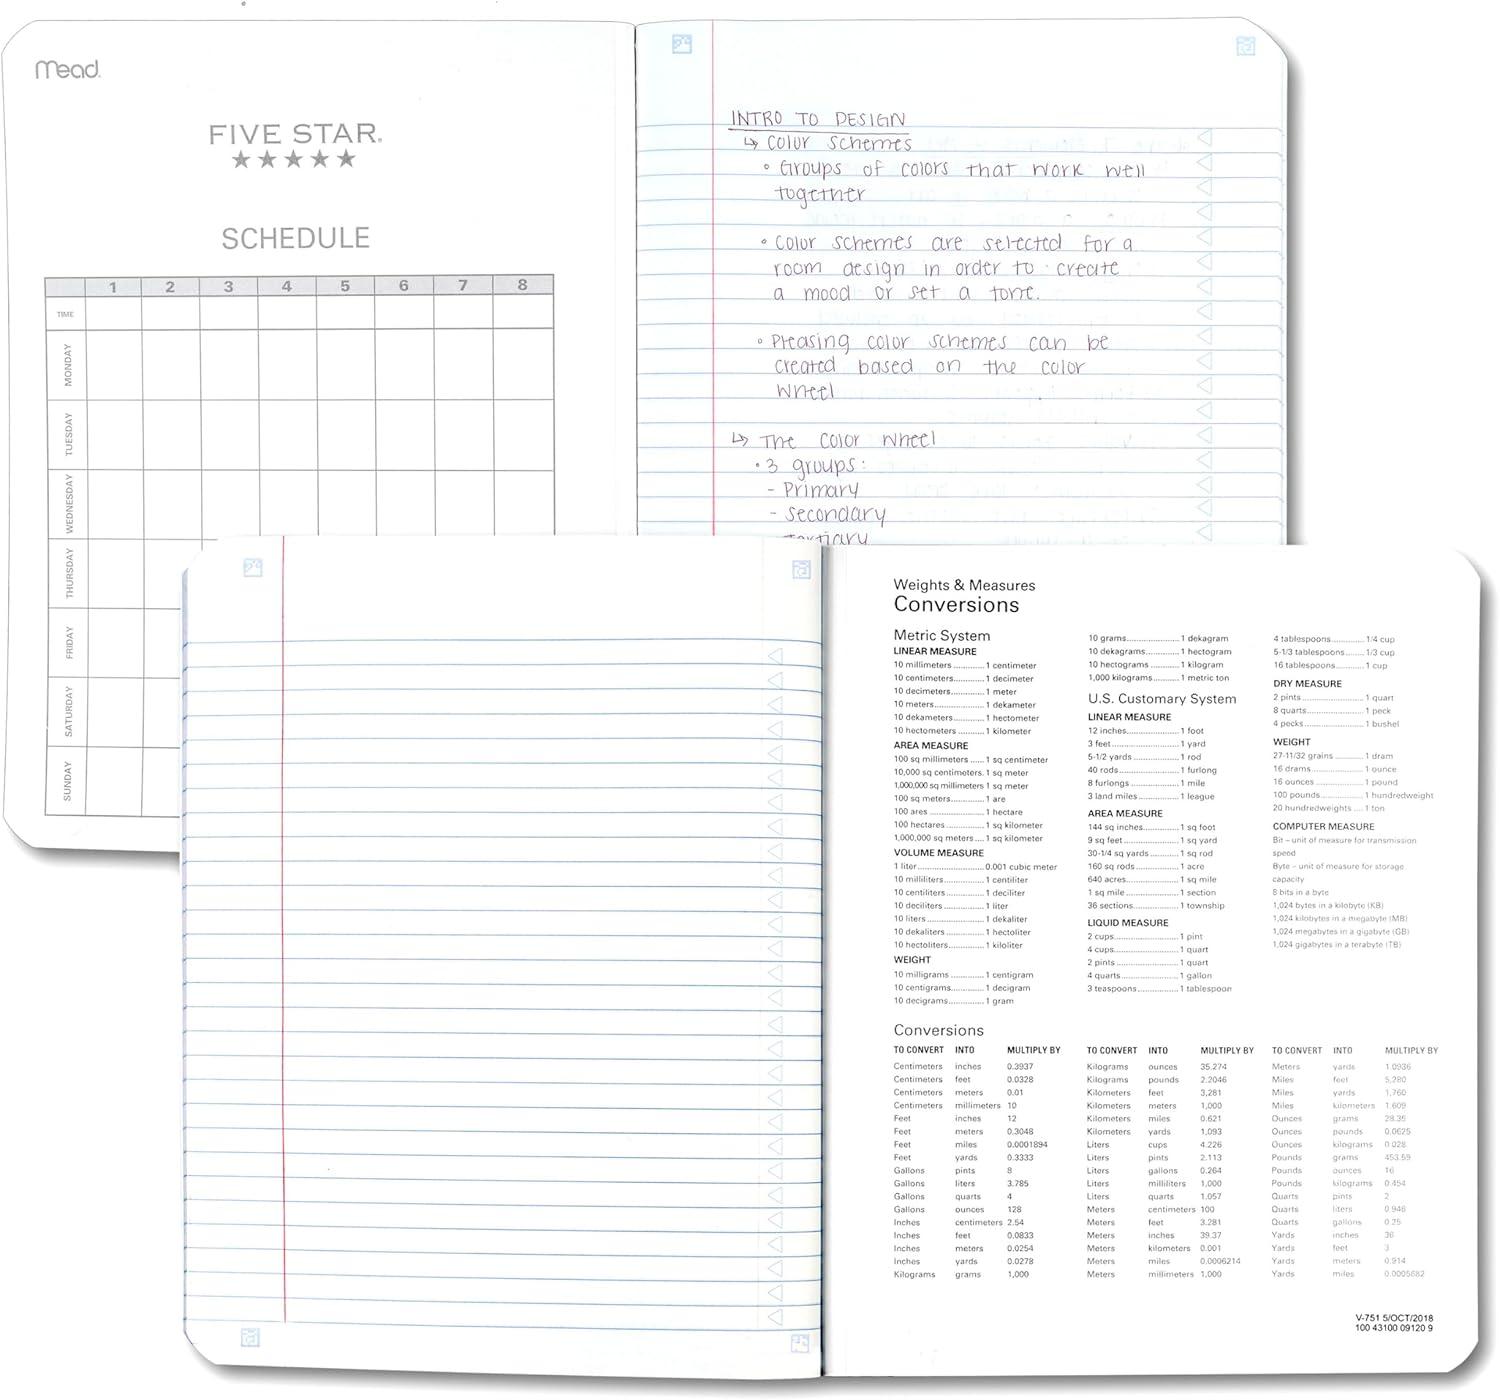 Mead
FIVE STAR
SCHEDULE
1 2 3 4 5 6 7 8
TIME
MONDAY
TUESDAY
WEDNESDAY
THURSDAY
FRIDAY
SATURDAY
SUNDAY
INTRO TO DESIGN
↳ Color schemes
• Groups of colors that work well
together
• Color schemes are selected for a
room design in order to create
a mood or set a tone.
• Pleasing color schemes can be
created based on the color
wheel
↳ The color wheel
• 3 groups:
- Primary
- Secondary
tertiary
Weights & Measures
Conversions
Metric System
LINEAR MEASURE
10 millimeters ............ 1 centimeter
10 centimeters............ 1 decimeter
10 decimeters ............ 1 meter
10 meters.................. 1 dekameter
10 dekameters ........... 1 hectometer
10 hectometers .......... 1 kilometer
AREA MEASURE
100 sq millimeters ...... 1 sq centimeter
10,000 sq centimeters. 1 sq meter
1,000,000 sq millimeters 1 sq meter
100 sq meters............ 1 are
100 ares ................... 1 hectare
100 hectares .............. 1 sq kilometer
1,000,000 sq meters .... 1 sq kilometer
VOLUME MEASURE
1 liter....................... 0.001 cubic meter
10 milliliters .............. 1 centiliter
10 centiliters.............. 1 deciliter
10 deciliters .............. 1 liter
10 liters.................... 1 dekaliter
10 dekaliters ............. 1 hectoliter
10 hectoliters............. 1 kiloliter
WEIGHT
10 milligrams ............ 1 centigram
10 centigrams............ 1 decigram
10 decigrams............. 1 gram
10 grams................... 1 dekagram
10 dekagrams ............ 1 hectogram
10 hectograms ........... 1 kilogram
1,000 kilograms.......... 1 metric ton
U.S. Customary System
LINEAR MEASURE
12 inches.................. 1 foot
3 feet....................... 1 yard
5-1/2 yards ............... 1 rod
40 rods..................... 1 furlong
8 furlongs ................. 1 mile
3 land miles .............. 1 league
AREA MEASURE
144 sq inches............. 1 sq foot
9 sq feet ................... 1 sq yard
30-1/4 sq yards .......... 1 sq rod
160 sq rods ............... 1 acre
640 acres.................. 1 sq mile
1 sq mile .................. 1 section
36 sections................ 1 township
LIQUID MEASURE
2 cups...................... 1 pint
4 cups...................... 1 quart
2 pints ..................... 1 quart
4 quarts.................... 1 gallon
3 teaspoons............... 1 tablespoon
4 tablespoons............ 1/4 cup
5-1/3 tablespoons....... 1/3 cup
16 tablespoons........... 1 cup
DRY MEASURE
2 pints ..................... 1 quart
8 quarts.................... 1 peck
4 pecks .................... 1 bushel
WEIGHT
27-11/32 grains .......... 1 dram
16 drams .................. 1 ounce
16 ounces ................. 1 pound
100 pounds ............... 1 hundredweight
20 hundredweights .... 1 ton
COMPUTER MEASURE
Bit – unit of measure for transmission
speed
Byte – unit of measure for storage
capacity
8 bits in a byte
1,024 bytes in a kilobyte (KB)
1,024 kilobytes in a megabyte (MB)
1,024 megabytes in a gigabyte (GB)
1,024 gigabytes in a terabyte (TB)
Conversions
TO CONVERT INTO MULTIPLY BY
Centimeters inches 0.3937
Centimeters feet 0.0328
Centimeters meters 0.01
Centimeters millimeters 10
Feet inches 12
Feet meters 0.3048
Feet miles 0.0001894
Feet yards 0.3333
Gallons pints 8
Gallons liters 3.785
Gallons quarts 4
Gallons ounces 128
Inches centimeters 2.54
Inches feet 0.0833
Inches meters 0.0254
Inches yards 0.0278
Kilograms grams 1,000
TO CONVERT INTO MULTIPLY BY
Kilograms ounces 35.274
Kilograms pounds 2.2046
Kilometers feet 3,281
Kilometers meters 1,000
Kilometers miles 0.621
Kilometers yards 1,093
Liters cups 4.226
Liters pints 2.113
Liters gallons 0.264
Liters milliliters 1,000
Liters quarts 1.057
Meters centimeters 100
Meters feet 3.281
Meters inches 39.37
Meters kilometers 0.001
Meters miles 0.0006214
Meters millimeters 1,000
TO CONVERT INTO MULTIPLY BY
Meters yards 1.0936
Miles feet 5,280
Miles yards 1,760
Miles kilometers 1.609
Ounces grams 28.35
Ounces pounds 0.0625
Ounces kilograms 0.028
Pounds grams 453.59
Pounds ounces 16
Pounds kilograms 0.454
Quarts pints 2
Quarts liters 0.946
Quarts gallons 0.25
Yards inches 36
Yards feet 3
Yards meters 0.914
Yards miles 0.0005682
V-751 5/OCT/2018
100 43100 09120 9